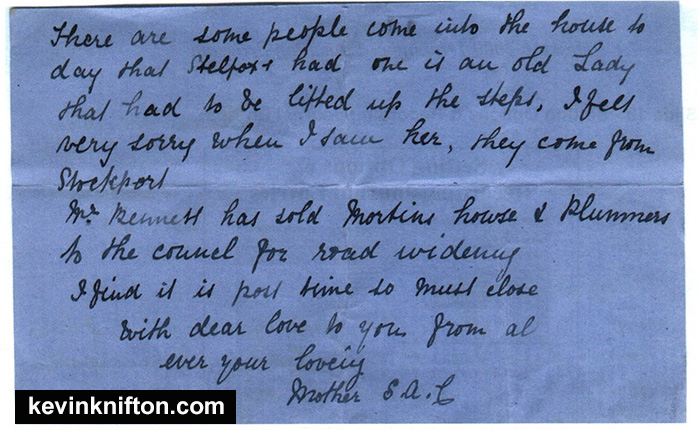 There are some people come into the house to
day that Stelfox+ had one is an old Lady
that had to be lifted up the steps, I felt
very sorry when I saw her, they come from
Stockport
Mr Bennett has sold Mortins house & Plummers
to the councel for road widening
I find it is post time so must close
with dear love to you from al
ever your loveiy
Mother S A. C
kevinknifton.com